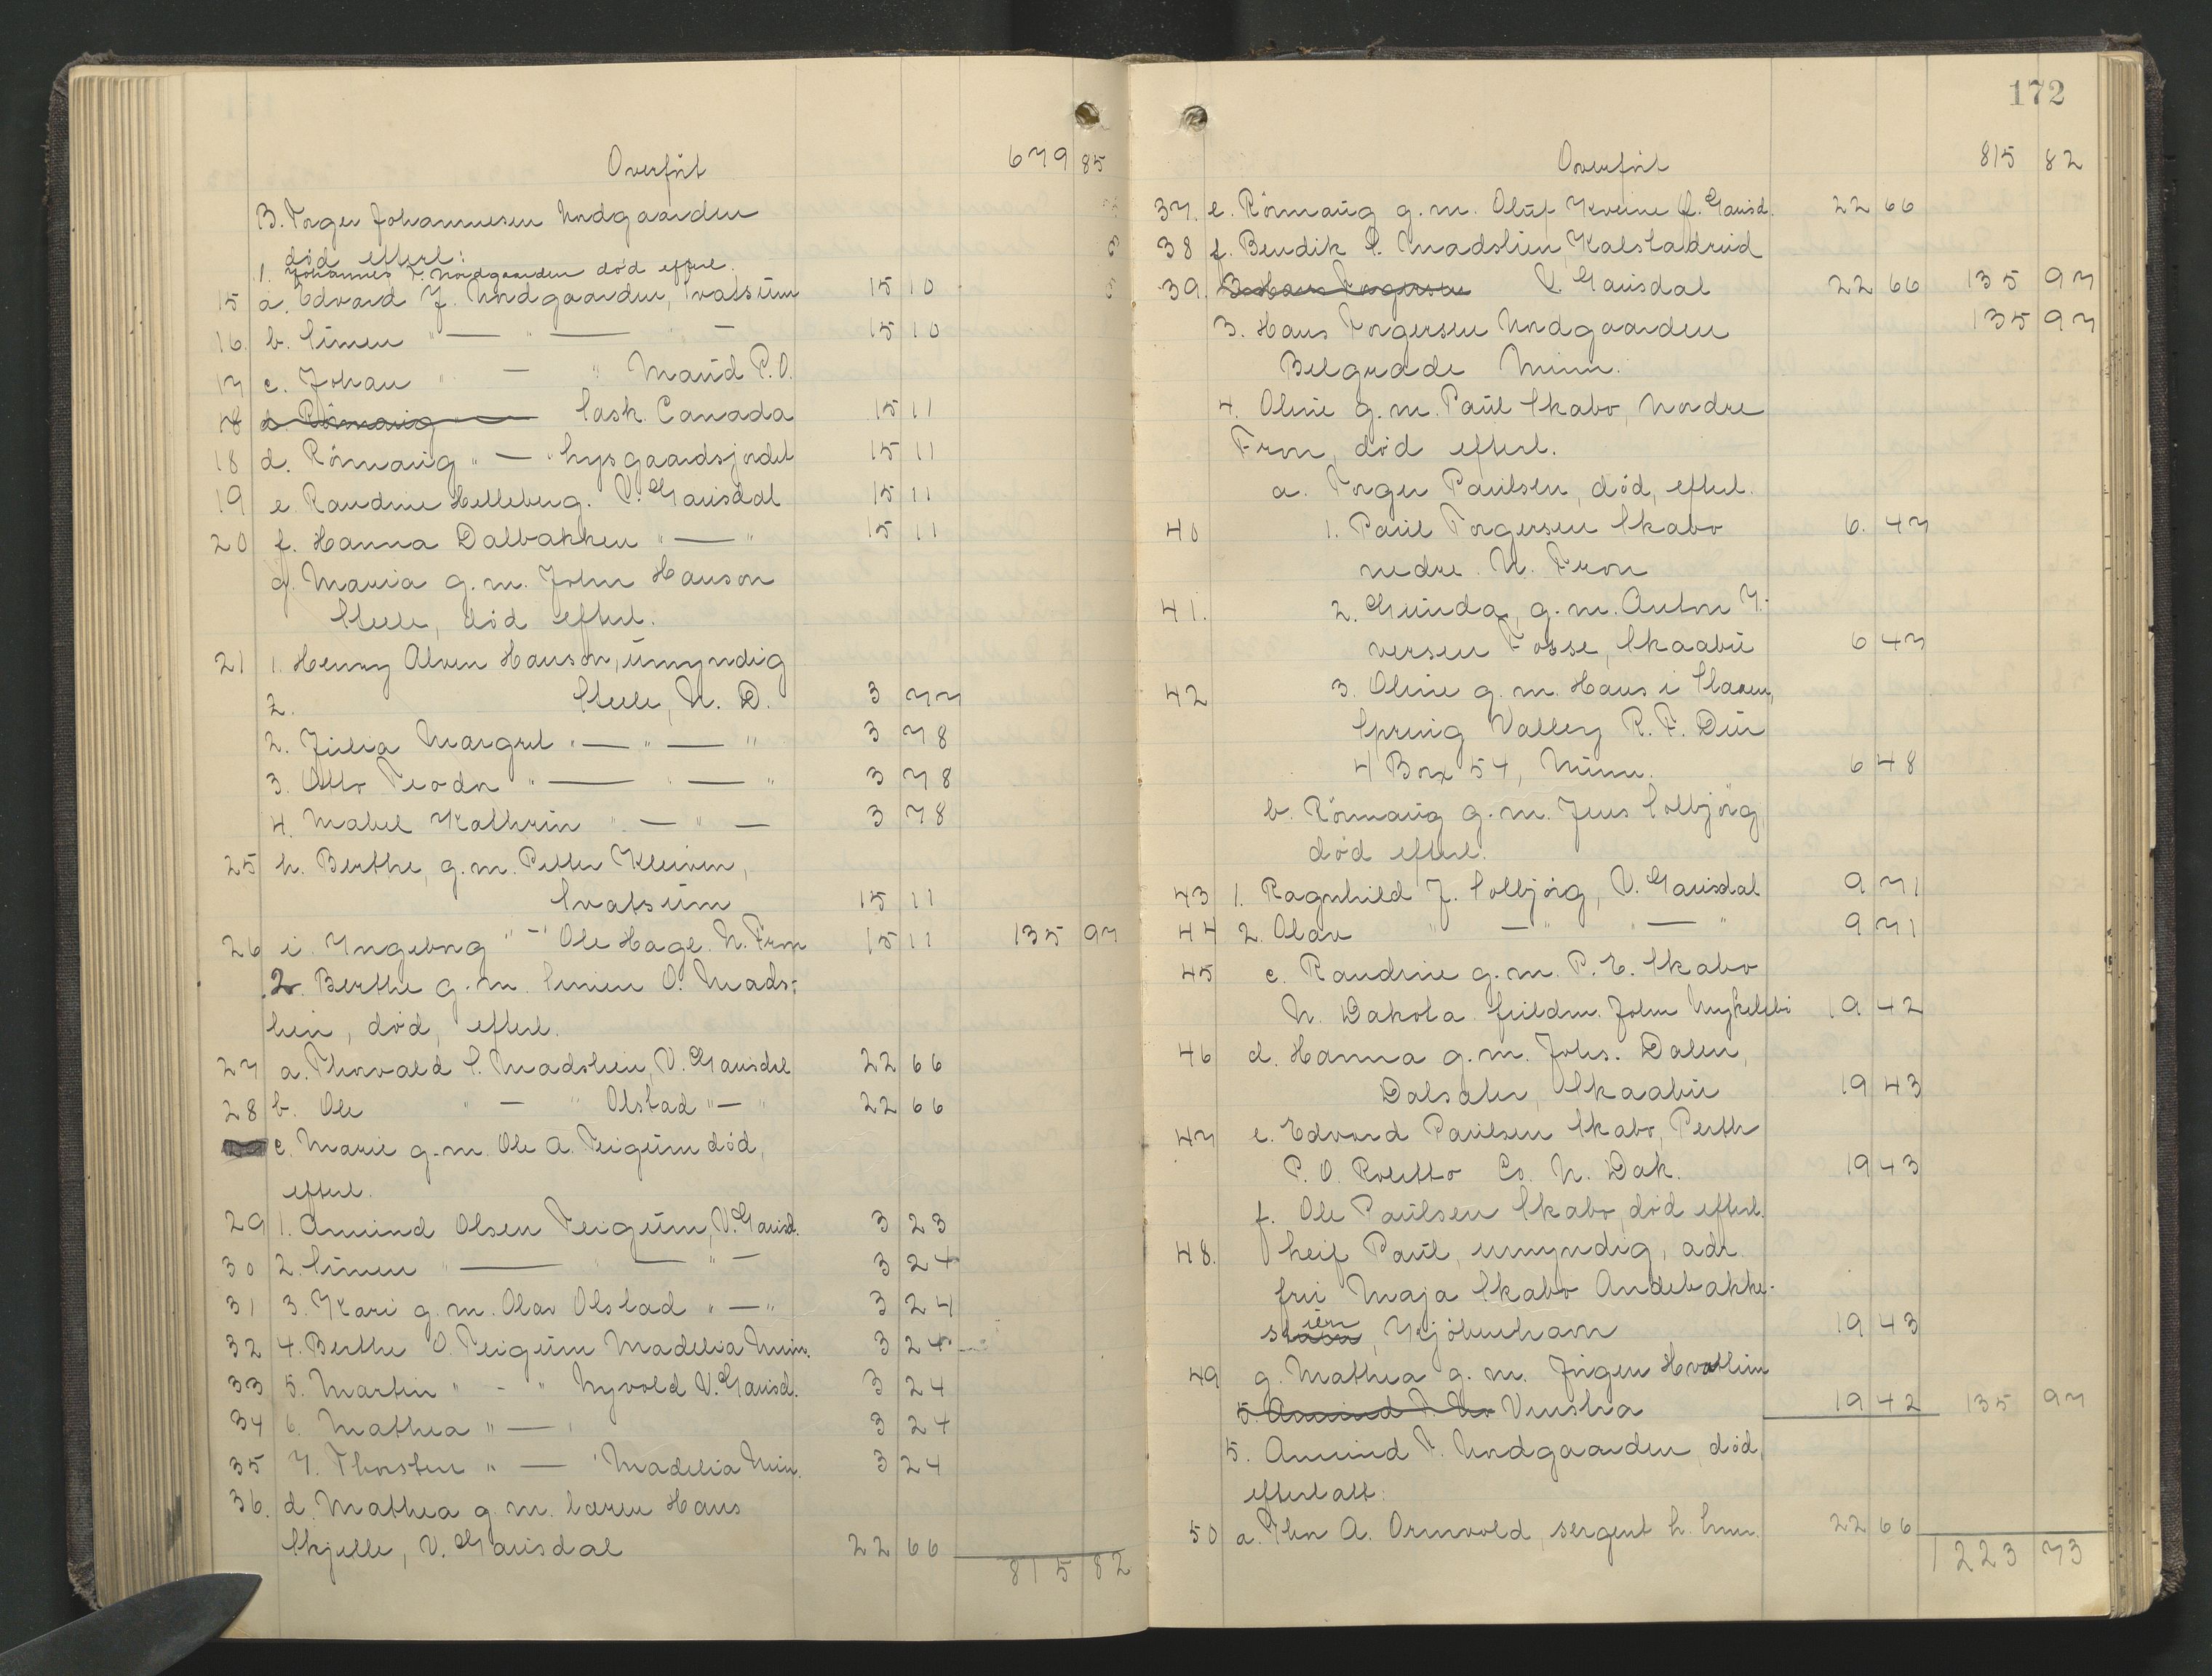 Overført 679 85
B. Torger Johannesen Nordgaarden
død efterl:
1. Johannes T. Nordgaarden død efterl.
15 a. Edvard J. Nordgaarden, Svatsum 15 10
16. b. Simen " — " — — 15 10
17 c. Johan " — " Maud P.O.
18 d. Rönnaug — Sask. Canada 15 11
18 d. Rönnaug " — " Lysgaardsjordet 15 11
19 e. Randine Helleberg. V. Gausdal 15 11
20 f. Hanna Dalbakken " — " 15 11
g. Maria g.m. John Hanson
Steele, død efterl.
21 1. Henry Alven Hanson, umyndig
2. Steele, N. D. 3 77
2. Julia Margret " — " — " 3 78
3. Otto Teodor " — " — " 3 78
4. Mabel Kathrin " — " — 3 78
25 h. Berthe, g.m. Petter Kleiven,
Svatsum 15 11
26 i. Ingeborg " — " Ole Hage. N. Fron 15 11 135 97
2. Berthe g.m. Simen O. Mads-
lien, død, efterl.
27 a. Thorvald S. Madslien, V. Gausdal 22 66
28 b. Ole " — " Olstad " — " 22 66
c. Marie g.m. Ole A. Teigum død,
efterl.
29 1. Amund Olsen Teigum, V. Gausd. 3 23
30 2. Simen " — " — " — 3 24
31 3. Kari g.m. Olav Olstad " — " 3 24
32 4. Berthe O. Teigum Madelia Minn. 3 24
33 5. Martin " - " Nyvold V. Gausd. 3 24
34 6. Mathea " — " 3 24
35 7. Thorsten " — " Madelia Min. 3 24
36. d. Mathea g.m. lærer Hans
Skjelle, V. Gausdal 22 66
815 82
172
Overført 815 82
37. e. Rönnaug g.m. Oluf Kveine Ø. Gausd. 22 66
38 f. Bendik S. Madslien Kalstadreid
39. 3. Hans Torgersen V. Gausdal 22 66 135 97
3. Hans Torgersen Nordgaarden 135 97
Belgrade Minn.
4. Oline g.m. Paul Skabo, Nordre
Fron, død efterl.
a. Torger Paulsen, død, efterl.
40 1. Paul Torgersen Skabo 6. 47
nedre. N. Fron
41. 2. Gunda, g.m. Anton I-
versen Fosse, Skaabu 6 47
42 3. Oline g.m. Hans i Slaaen,
Spring Valley R. F. Dur
4 Box 54, Minn. 6 48
b. Rönnaug g.m. Jens Solbjörg,
død efterl.
43 1. Ragnhild J. Solbjörg, V. Gausdal 9 71
44 2. Olav " — " " — " 9 71
45 c. Randine g.m. P. E. Skabo
N. Dakota fuldm. John Nykelsbi 19 42
46 d. Hanna g.m. Johs. Dalen,
Dalseter, Skaabu 19 43
47 e. Edvard Paulsen Skabo, Perth
P. O. Rolette Co. N. Dak. 19 43
f. Ole Paulsen Skabo, død efterl.
48. Leif Paul, umyndig, adr.
fru Maja Skabo Andebakke-
stien, Kjöbenhavn 19 43
49 g. Mathea g.m. Jörgen Hvattum
5. Amund T. No Venstra 19 42 135 97
5. Amund T. Nordgaarden, død,
efterlatt:
50 a. Thor A. Ormvold, sergent L. hmr. 22 66
1223 73